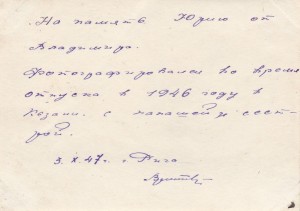 На память Юрию от
Владимира.
Фотографировался во время
отпуска в 1946 году в
Казани с папашей и сест-
рой.
3.X.47. г. Рига